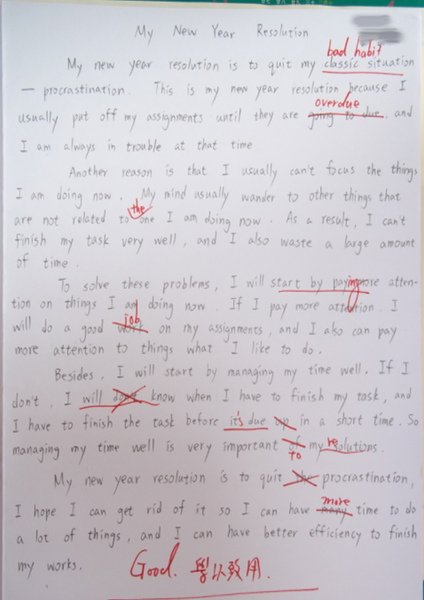 My New Year Resolution
bad habit
My new year resolution is to quit my classic situation
— procrastination. This is my new year resolution because I
overdue
usually put off my assignments until they are going to due. and
I am always in trouble at that time
Another reason is that I usually can't focus the things
I am doing now. My mind usually wander to other things that
the
are not related to one I am doing now. As a result, I can't
finish my task very well, and I also waste a large amount
of time.
To solve these problems, I will start by paying more atten-
tion on things I am doing now. If I pay more attention. I
job
will do a good work on my assignments, and I also can pay
more attention to things what I like to do.
Besides, I will start by managing my time well. If I
don't, I will don't know when I have to finish my task, and
I have to finish the task before it's due in a short time. So
managing my time well is very important of my resolutions.
to re
My new year resolution is to quit the procrastination,
I hope I can get rid of it so I can have many time to do
more
a lot of things, and I can have better efficiency to finish
my works.
Good. 學以致用.